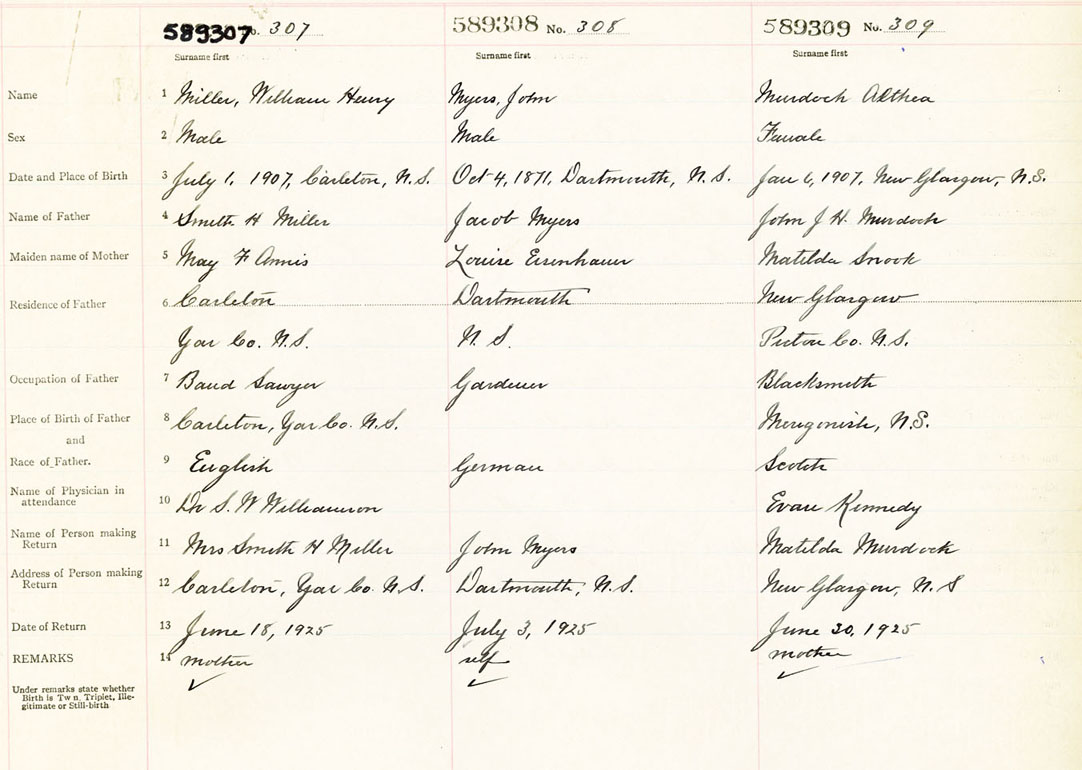 589307 No. 307 589308 No. 308 589309 No. 309
Surname first Surname first Surname first
Name 1 Miller, William Henry Myers, John Murdoch Althea
Sex 2 Male Male Female
Date and Place of Birth 3 July 1, 1907, Carleton, N.S. Oct 4, 1871, Dartmouth, N.S. Jan 6, 1907, New Glasgow, N.S.
Name of Father 4 Smith H Miller Jacob Myers John J H. Murdock
Maiden name of Mother 5 May F Annis Louise Eisenhauer Matilda Snook
Residence of Father 6 Carleton Dartmouth New Glasgow
Yar Co. N.S. N.S. Pictou Co. N.S.
Occupation of Father 7 Band Sawyer Gardener Blacksmith
Place of Birth of Father 8 Carleton, Yar Co. N.S. Merigonish, N.S.
and
Race of Father. 9 English German Scotch
Name of Physician in
attendance 10 Dr S. W Williamson Evan Kennedy
Name of Person making
Return 11 Mrs Smith H Miller John Myers Matilda Murdock
Address of Person making
Return 12 Carleton, Yar Co. N.S. Dartmouth, N.S. New Glasgow, N.S
Date of Return 13 June 18, 1925 July 3, 1925 June 30, 1925
REMARKS 14 mother self mother
Under remarks state whether
Birth is Tw n, Triplet, Ille-
gitimate or Still-birth